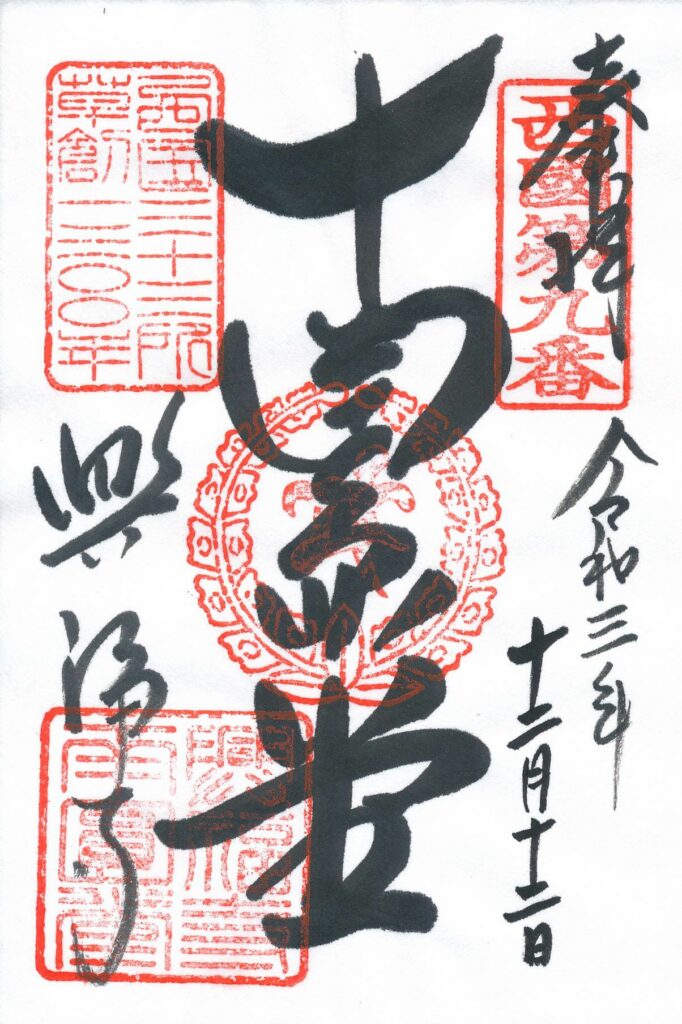 奉拝
西國第九番
令和三年
十二月十二日
南圓堂
西國三十三所
草創一三〇〇年
興福寺
興福寺
南圓堂